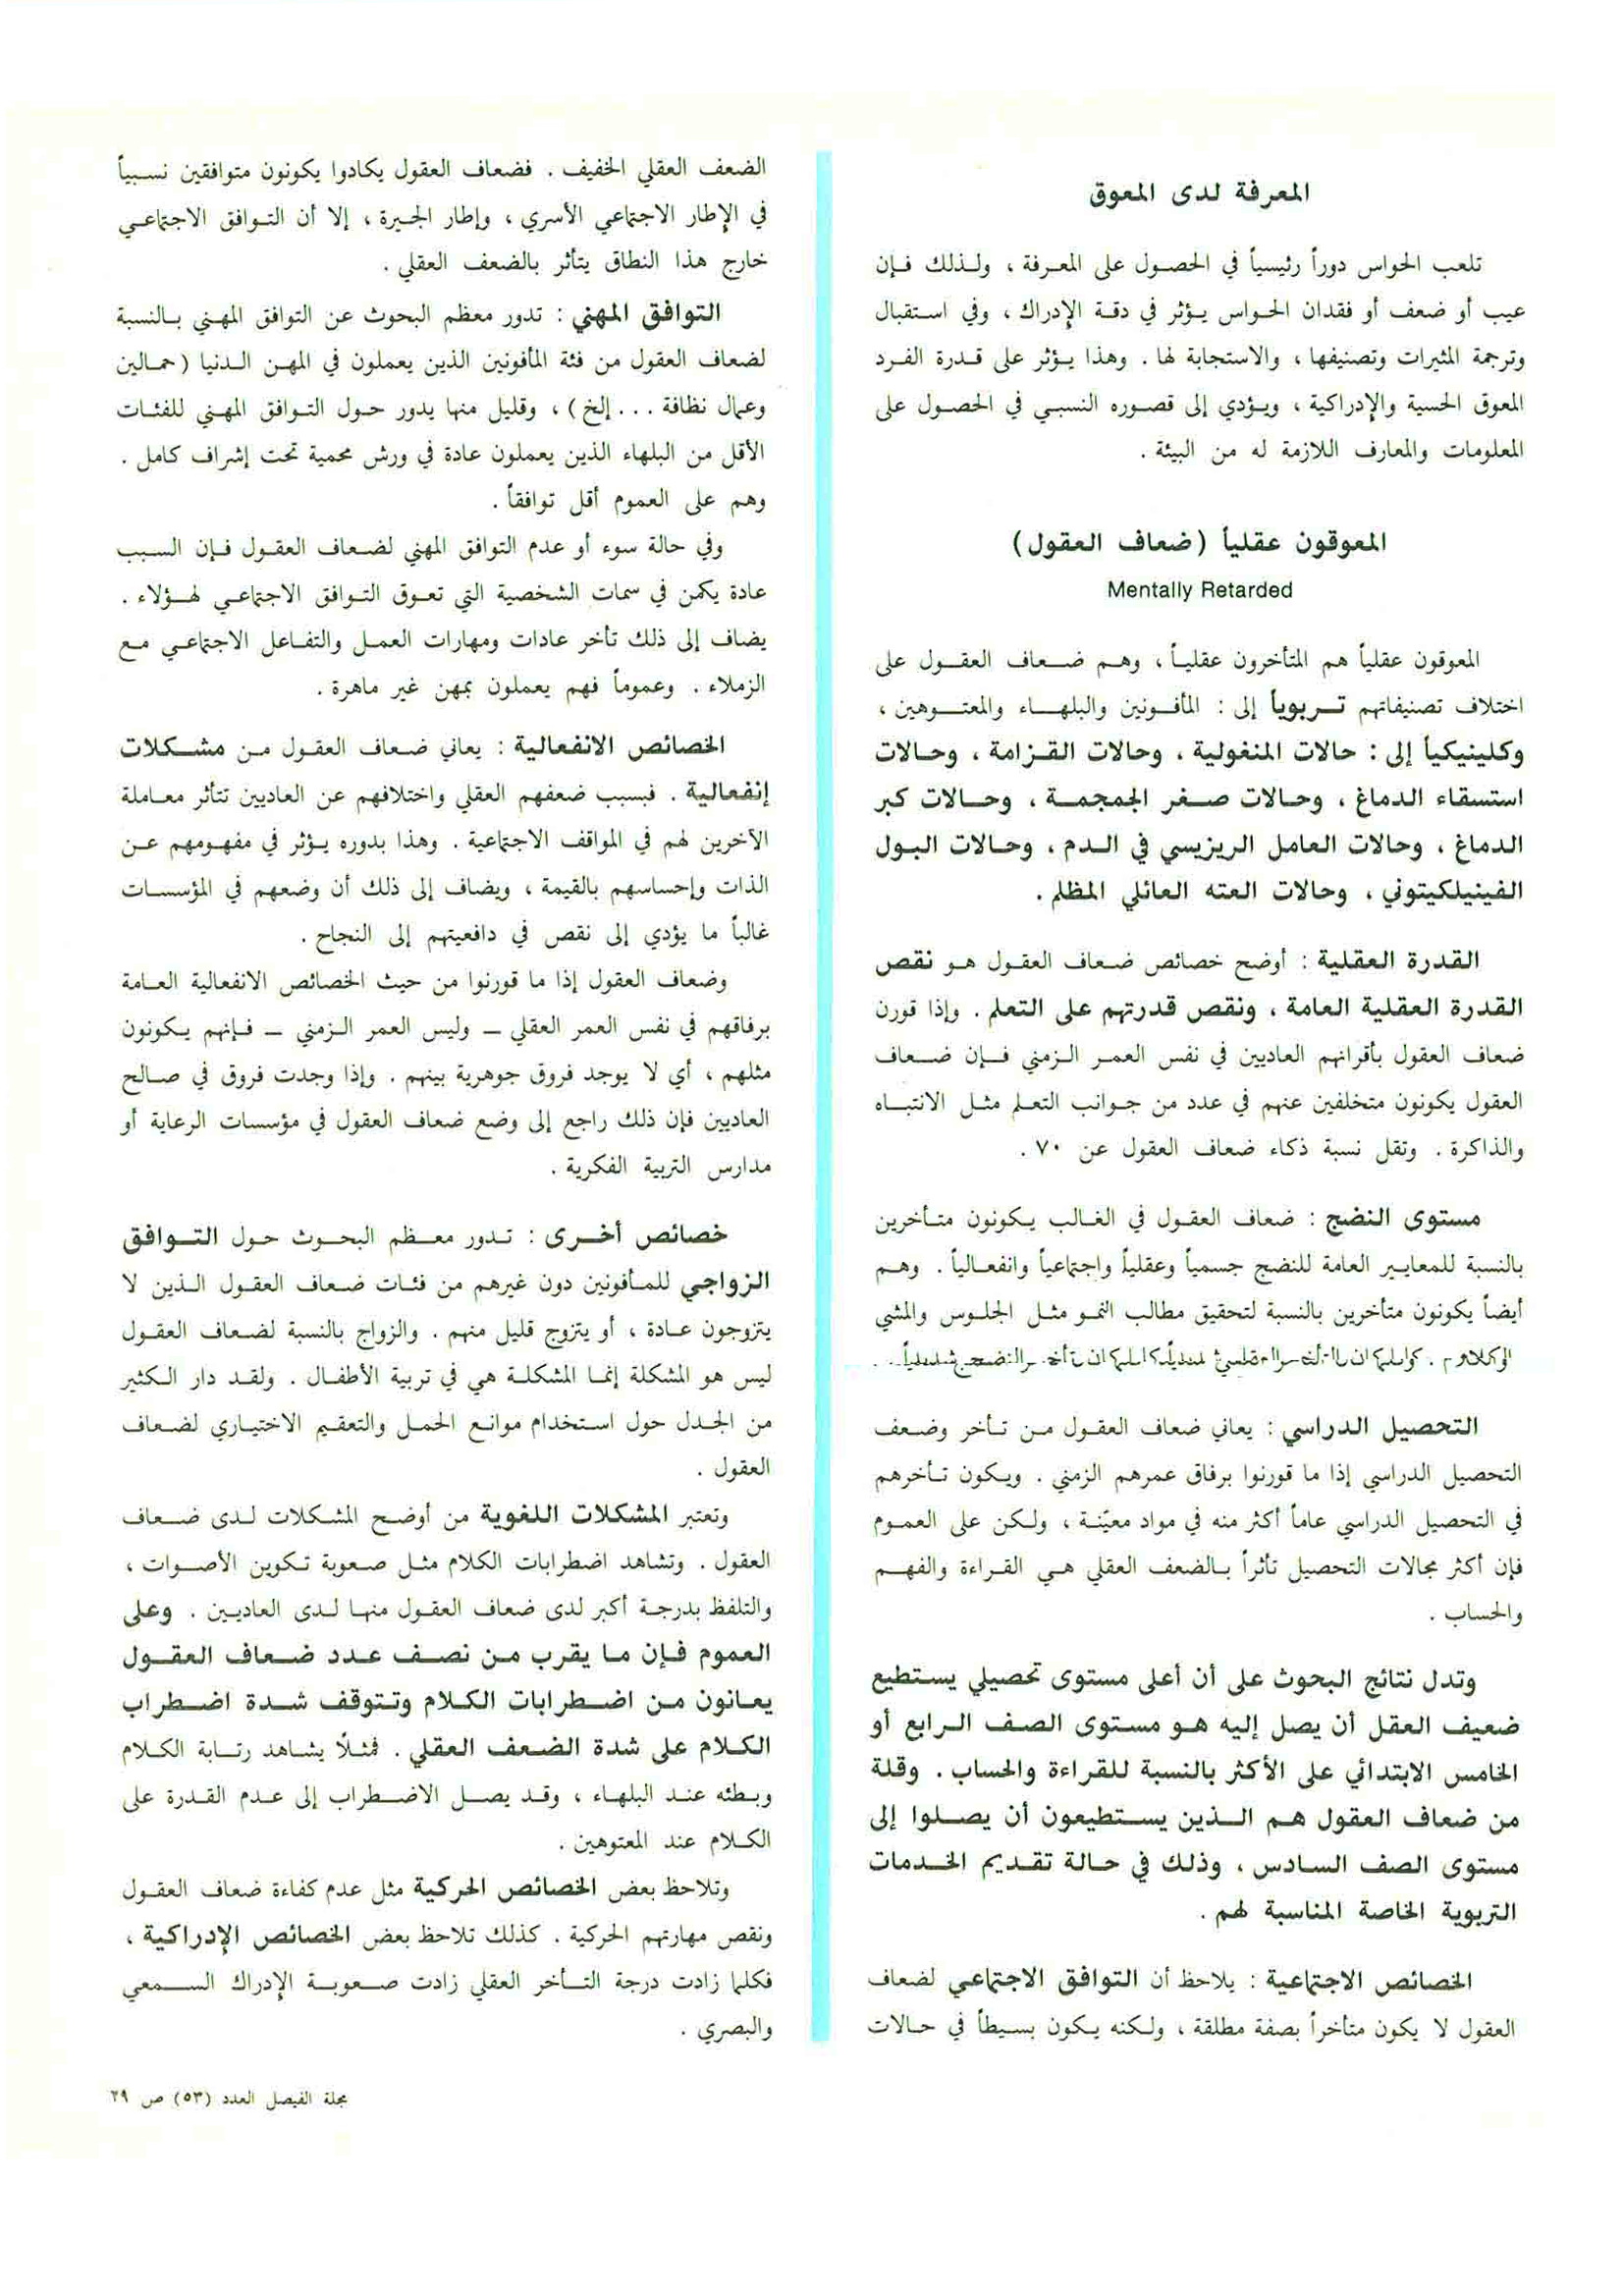 المعرفة لدى المعوق
تلعب الحواس دوراً رئيسياً في الحصول على المعرفة ، ولذلك فإن
عيب أو ضعف أو فقدان الحواس يؤثر في دقة الإدراك ، وفي استقبال
وترجمة المثيرات وتصنيفها ، والاستجابة لها . وهذا يؤثر على قدرة الفرد
المعوق الحسية والإدراكية ، ويؤدي إلى قصوره النسبي في الحصول على
المعلومات والمعارف اللازمة له من البيئة .
المعوقون عقلياً (ضعاف العقول)
Mentally Retarded
المعوقون عقلياً هم المتأخرون عقلياً ، وهم ضعاف العقول على
اختلاف تصنيفاتهم تربوياً إلى : المأفونين والبلهاء والمعتوهين ،
وكلينيكياً إلى : حالات المنغولية ، وحالات القزامة ، وحالات
استسقاء الدماغ ، وحالات صغر الجمجمة ، وحالات كبر
الدماغ ، وحالات العامل الريزيسي في الدم ، وحالات البول
الفينيلكيتوني ، وحالات العته العائلي المظلم .
القدرة العقلية : أوضح خصائص ضعاف العقول هو نقص
القدرة العقلية العامة ، ونقص قدرتهم على التعلم . وإذا قورن
ضعاف العقول بأقرانهم العاديين في نفس العمر الزمني فإن ضعاف
العقول يكونون متخلفين عنهم في عدد من جوانب التعلم مثل الانتباه
والذاكرة . وتقل نسبة ذكاء ضعاف العقول عن ٧٠ .
مستوى النضج : ضعاف العقول في الغالب يكونون متأخرين
بالنسبة للمعايير العامة للنضج جسمياً وعقلياً واجتماعياً وانفعالياً . وهم
أيضاً يكونون متأخرين بالنسبة لتحقيق مطالب النمو مثل الجلوس والمشي
التحصيل الدراسي : يعاني ضعاف العقول من تأخر وضعف
التحصيل الدراسي إذا ما قورنوا برفاق عمرهم الزمني . ويكون تأخرهم
في التحصيل الدراسي عاماً أكثر منه في مواد معيّنة ، ولكن على العموم
فإن أكثر مجالات التحصيل تأثراً بالضعف العقلي هي القراءة والفهم
والحساب .
وتدل نتائج البحوث على أن أعلى مستوى تحصيلي يستطيع
ضعيف العقل أن يصل إليه هو مستوى الصف الرابع أو
الخامس الابتدائي على الأكثر بالنسبة للقراءة والحساب . وقلة
من ضعاف العقول هم الذين يستطيعون أن يصلوا إلى
مستوى الصف السادس ، وذلك في حالة تقديم الخدمات
التربوية الخاصة المناسبة لهم .
الخصائص الاجتماعية : يلاحظ أن التوافق الاجتماعي لضعاف
العقول لا يكون متأخراً بصفة مطلقة ، ولكنه يكون بسيطاً في حالات
الضعف العقلي الخفيف . فضعاف العقول يكادوا يكونون متوافقين نسبياً
في الإطار الاجتماعي الأسري ، وإطار الجيرة ، إلا أن التوافق الاجتماعي
خارج هذا النطاق يتأثر بالضعف العقلي .
التوافق المهني : تدور معظم البحوث عن التوافق المهني بالنسبة
لضعاف العقول من فئة المأفونين الذين يعملون في المهن الدنيا (حمالين
وعمال نظافة ... إلخ) ، وقليل منها يدور حول التوافق المهني للفئات
الأقل من البلهاء الذين يعملون عادة في ورش محمية تحت إشراف كامل .
وهم على العموم أقل توافقاً .
وفي حالة سوء أو عدم التوافق المهني لضعاف العقول فإن السبب
عادة يكمن في سمات الشخصية التي تعوق التوافق الاجتماعي لهؤلاء .
يضاف إلى ذلك تأخر عادات ومهارات العمل والتفاعل الاجتماعي مع
الزملاء . وعموماً فهم يعملون بمهن غير ماهرة .
الخصائص الانفعالية : يعاني ضعاف العقول من مشكلات
إنفعالية . فبسبب ضعفهم العقلي واختلافهم عن العاديين تتأثر معاملة
الآخرين لهم في المواقف الاجتماعية . وهذا بدوره يؤثر في مفهومهم عن
الذات وإحساسهم بالقيمة ، ويضاف إلى ذلك أن وضعهم في المؤسسات
غالباً ما يؤدي إلى نقص في دافعيتهم إلى النجاح .
وضعاف العقول إذا ما قورنوا من حيث الخصائص الانفعالية العامة
برفاقهم في نفس العمر العقلي – وليس العمر الزمني – فإنهم يكونون
مثلهم ، أي لا يوجد فروق جوهرية بينهم . وإذا وجدت فروق في صالح
العاديين فإن ذلك راجع إلى وضع ضعاف العقول في مؤسسات الرعاية أو
مدارس التربية الفكرية .
خصائص أخرى : تدور معظم البحوث حول التوافق
الزواجي للمأفونين دون غيرهم من فئات ضعاف العقول الذين لا
يتزوجون عادة ، أو يتزوج قليل منهم . والزواج بالنسبة لضعاف العقول
ليس هو المشكلة إنما المشكلة هي في تربية الأطفال . ولقد دار الكثير
من الجدل حول استخدام موانع الحمل والتعقيم الاختياري لضعاف
العقول .
وتعتبر المشكلات اللغوية من أوضح المشكلات لدى ضعاف
العقول . وتشاهد اضطرابات الكلام مثل صعوبة تكوين الأصوات ،
والتلفظ بدرجة أكبر لدى ضعاف العقول منها لدى العاديين . وعلى
العموم فإن ما يقرب من نصف عدد ضعاف العقول
يعانون من اضطرابات الكلام وتتوقف شدة اضطراب
الكلام على شدة الضعف العقلي . فمثلًا يشاهد رتابة الكلام
وبطئه عند البلهاء ، وقد يصل الاضطراب إلى عدم القدرة على
الكلام عند المعتوهين .
وتلاحظ بعض الخصائص الحركية مثل عدم كفاءة ضعاف العقول
ونقص مهارتهم الحركية . كذلك تلاحظ بعض الخصائص الإدراكية ،
فكلما زادت درجة التأخر العقلي زادت صعوبة الإدراك السمعي
والبصري .
مجلة الفيصل العدد (٥٣) ص ٢٩